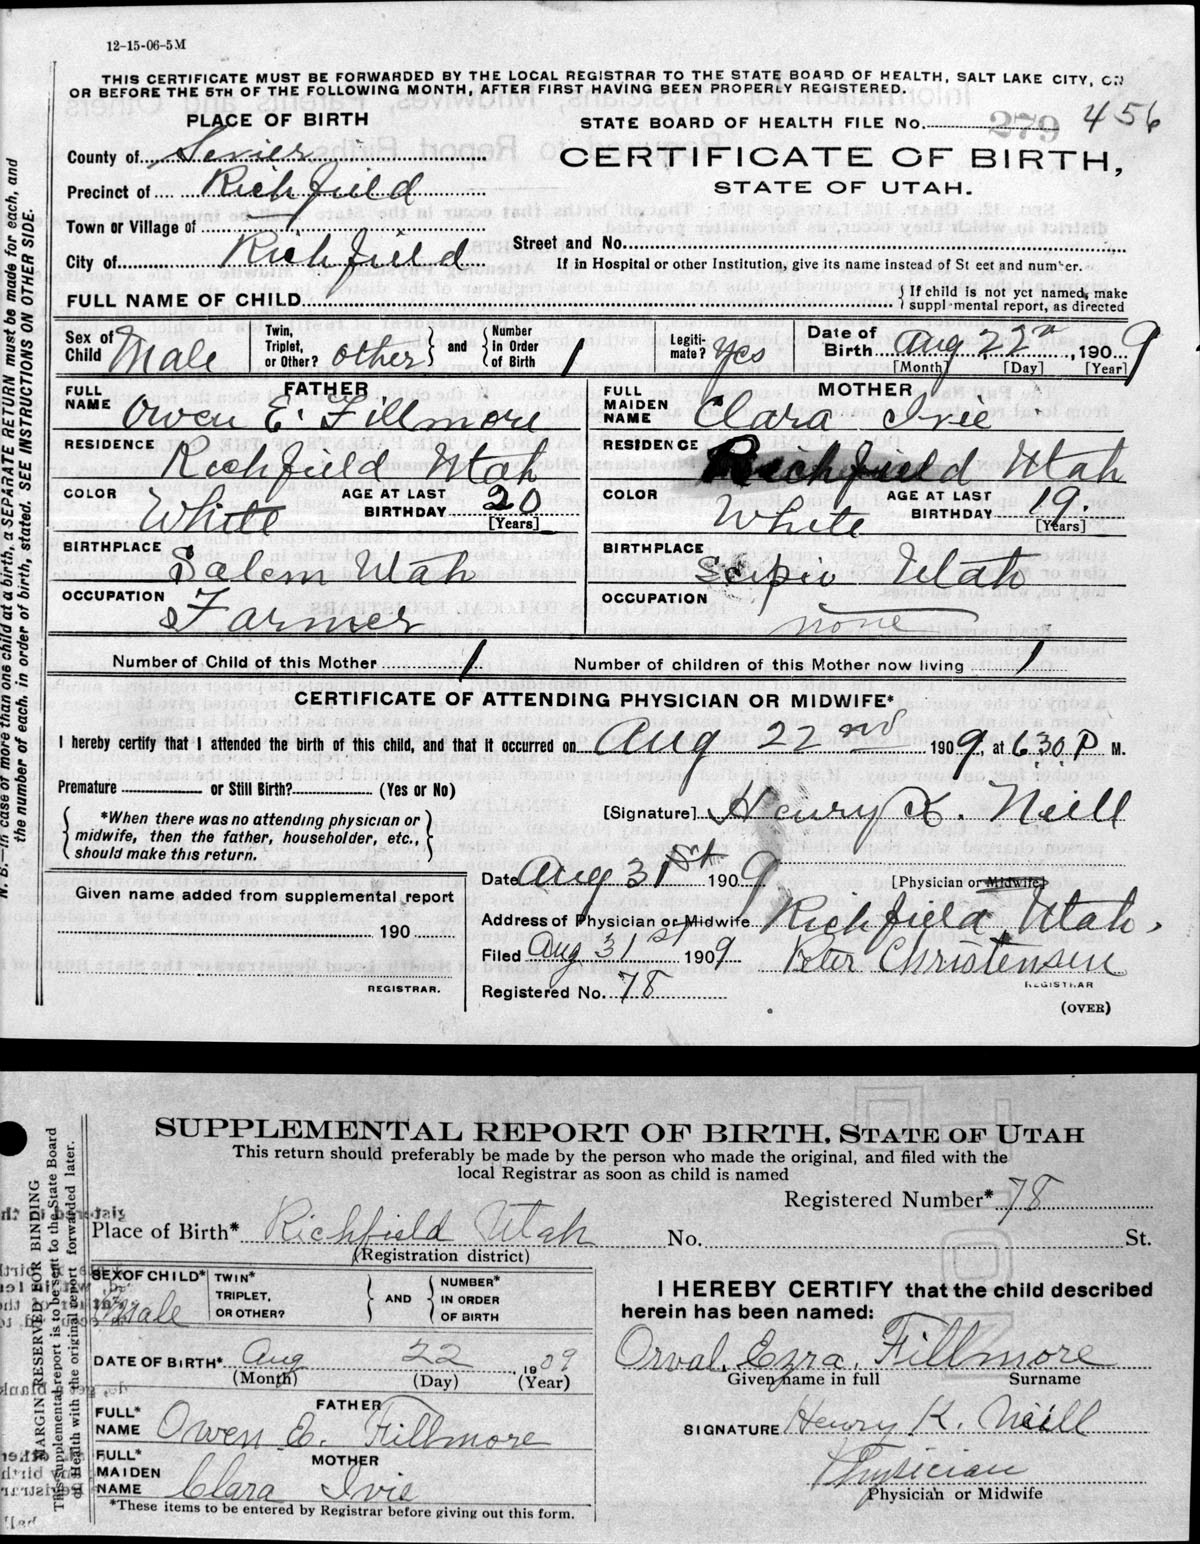 12-15-06-5M
THIS CERTIFICATE MUST BE FORWARDED BY THE LOCAL REGISTRAR TO THE STATE BOARD OF HEALTH, SALT LAKE CITY, ON
OR BEFORE THE 5TH OF THE FOLLOWING MONTH, AFTER FIRST HAVING BEEN PROPERLY REGISTERED.
PLACE OF BIRTH
STATE BOARD OF HEALTH FILE No. 279 456
County of Sevier
CERTIFICATE OF BIRTH,
Precinct of Richfield
STATE OF UTAH.
Town or Village of
Street and No.
City of Richfield
If in Hospital or other Institution, give its name instead of St eet and number.
FULL NAME OF CHILD
If child is not yet named, make
suppl mental report, as directed
Sex of Child Male
Twin, Triplet, or Other? other and Number in Order of Birth 1
Legiti-mate? Yes
Date of Birth Aug 22nd, 1909
[Month] [Day] [Year]
FATHER
FULL NAME Owen E. Fillmore
MOTHER
FULL MAIDEN NAME Clara Ivie
RESIDENCE Richfield Utah
RESIDENCE Richfield Utah
COLOR White AGE AT LAST BIRTHDAY 20 [Years]
COLOR White AGE AT LAST BIRTHDAY 19. [Years]
BIRTHPLACE Salem Utah
BIRTHPLACE Scipio Utah
OCCUPATION Farmer
OCCUPATION none
Number of Child of this Mother 1
Number of children of this Mother now living 1
CERTIFICATE OF ATTENDING PHYSICIAN OR MIDWIFE*
I hereby certify that I attended the birth of this child, and that it occurred on Aug 22nd 1909, at 630 P M.
Premature or Still Birth? (Yes or No)
[Signature] Henry K. Neill
*When there was no attending physician or
midwife, then the father, householder, etc.,
should make this return.
Date Aug 31st 1909
[Physician or Midwife]
Given name added from supplemental report
190
REGISTRAR.
Address of Physician or Midwife Richfield, Utah.
Filed Aug 31st 1909 Peter Christensen
REGISTRAR
Registered No. 78
(OVER)
N. B.—In case of more than one child at a birth, a SEPARATE RETURN must be made for each, and
the number of each, in order of birth, stated. SEE INSTRUCTIONS ON OTHER SIDE.
SUPPLEMENTAL REPORT OF BIRTH. STATE OF UTAH
This return should preferably be made by the person who made the original, and filed with the
local Registrar as soon as child is named
Registered Number* 78
Place of Birth* Richfield Utah No. St.
(Registration district)
SEX OF CHILD* Male
TWIN* TRIPLET, OR OTHER? AND NUMBER* IN ORDER OF BIRTH
I HEREBY CERTIFY that the child described
herein has been named:
Orval. Ezra. Fillmore
Given name in full Surname
DATE OF BIRTH* Aug 22, 1909
(Month) (Day) (Year)
FATHER
FULL* NAME Owen E. Fillmore
SIGNATURE Henry K. Neill
MOTHER
FULL* MAIDEN NAME Clara Ivie
Physician
Physician or Midwife
*These items to be entered by Registrar before giving out this form.
MARGIN RESERVED FOR BINDING
This supplemental report is to be sent to the State Board
of Health with the original report forwarded later.